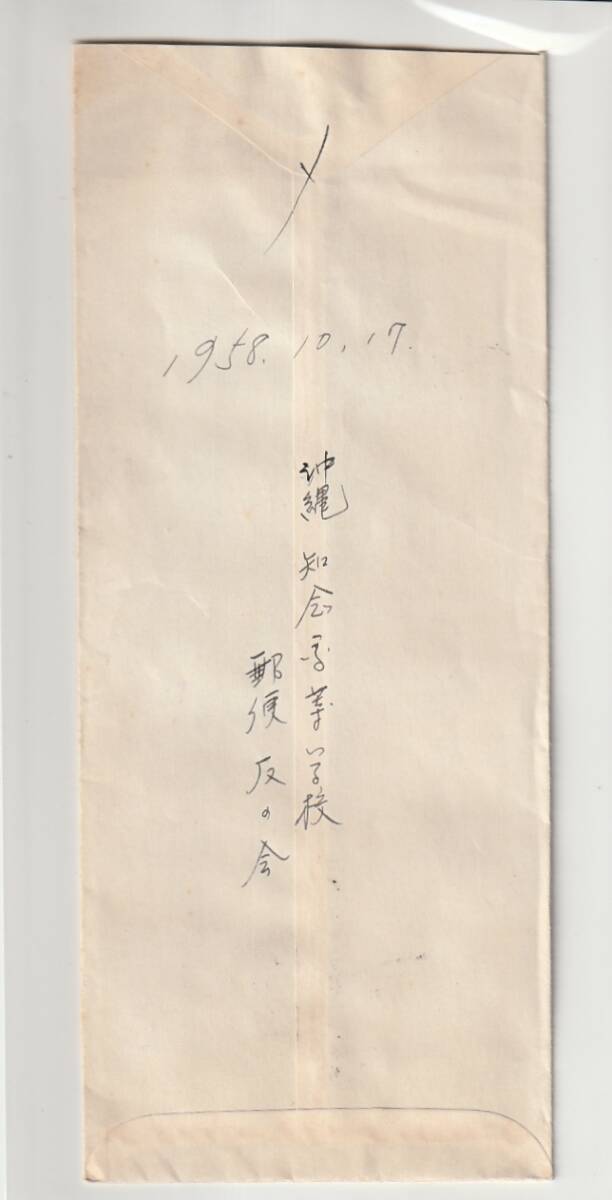 〆
1958.10.17.
沖縄 知念高等学校
郵便友の会